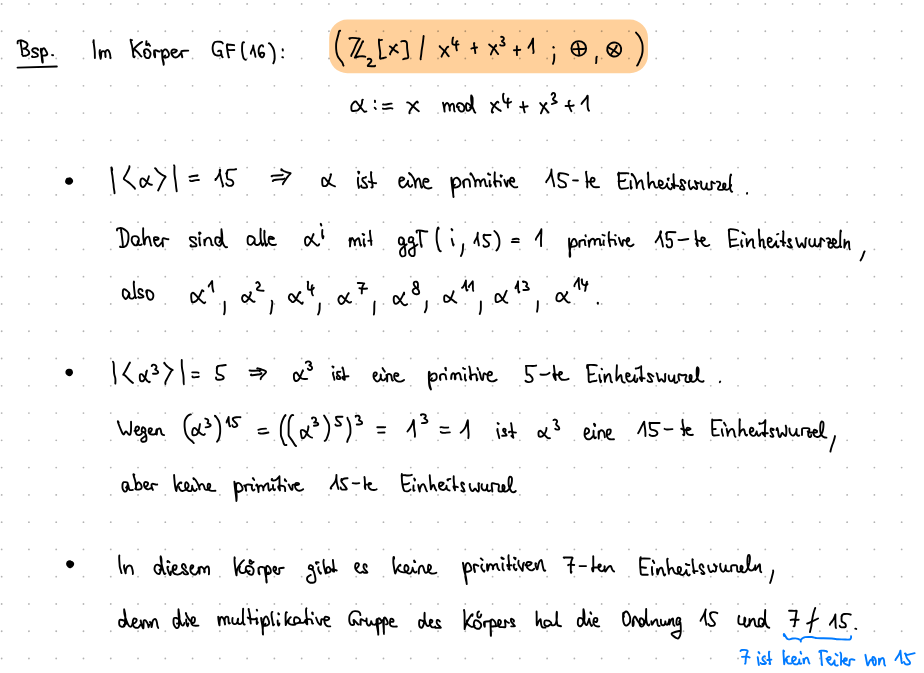 Bsp. Im Körper GF(16): (ℤ₂[x] / x⁴ + x³ + 1 ; ⊕, ⊗)
α := x mod x⁴ + x³ + 1
• |⟨α⟩| = 15 ⇒ α ist eine primitive 15-te Einheitswurzel.
Daher sind alle αⁱ mit ggT(i, 15) = 1 primitive 15-te Einheitswurzeln,
also α¹, α², α⁴, α⁷, α⁸, α¹¹, α¹³, α¹⁴.
• |⟨α³⟩| = 5 ⇒ α³ ist eine primitive 5-te Einheitswurzel.
Wegen (α³)¹⁵ = ((α³)⁵)³ = 1³ = 1 ist α³ eine 15-te Einheitswurzel,
aber keine primitive 15-te Einheitswurzel
• In diesem Körper gibt es keine primitiven 7-ten Einheitswurzeln,
denn die multiplikative Gruppe des Körpers hat die Ordnung 15 und 7 ∤ 15.
7 ist kein Teiler von 15